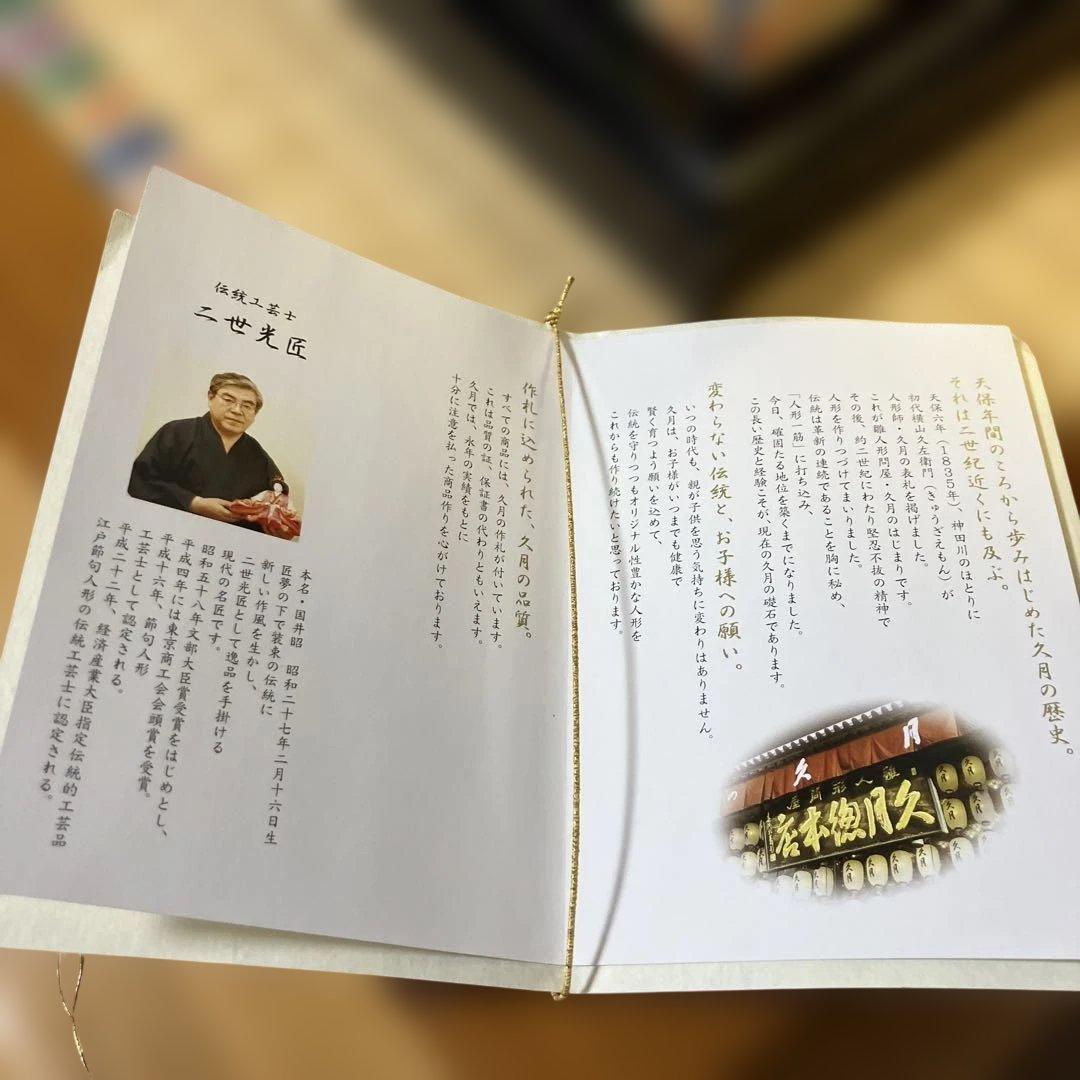 天保年間のころから歩みはじめた久月の歴史。
それは二世紀近くにも及ぶ。
天保六年（1835年）、神田川のほとりに
初代横山久左衛門（きゅうざえもん）が
人形師・久月の表札を掲げました。
これが雛人形問屋・久月のはじまりです。
その後、約二世紀にわたり堅忍不抜の精神で
人形を作りつづけてまいりました。
伝統は革新の連続であることを胸に秘め、
「人形一筋」に打ち込み、
今日、確固たる地位を築くまでになりました。
この長い歴史と経験こそが、現在の久月の礎石であります。
変わらない伝統と、お子様への願い。
いつの時代も、親が子供を思う気持ちに変わりはありません。
久月は、お子様がいつまでも健康で
賢く育つよう願いを込めて、
伝統を守りつつもオリジナル性豊かな人形を
これからも作り続けたいと思っております。
久月
雛人形問屋
久月總本店
久月
久月
久月
久月
久月
作札に込められた、久月の品質。
すべての商品には、久月の作札が付いています。
これは品質の証、保証書の代わりともいえます。
久月では、永年の実績をもとに
十分に注意を払った商品作りを心がけております。
伝統工芸士
二世光匠
本名・国井昭　昭和二十七年二月十六日生
匠夢の下で装束の伝統に
新しい作風を生かし、
二世光匠として逸品を手掛ける
現代の名匠です。
昭和五十八年文部大臣賞受賞をはじめとし、
平成四年には東京商工会会頭賞を受賞。
平成十六年、節句人形
工芸士として認定される。
平成二十二年、経済産業大臣指定伝統的工芸品
江戸節句人形の伝統工芸士に認定される。